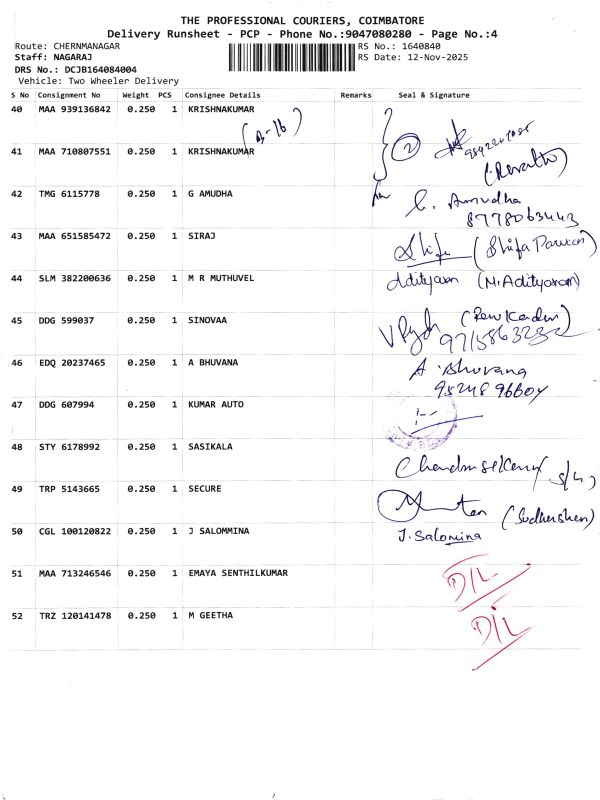 THE PROFESSIONAL COURIERS, COIMBATORE
Delivery Runsheet - PCP - Phone No.:9047080280 - Page No.:4
Route: CHERNMANAGAR
RS No.: 1640840
Staff: NAGARAJ
RS Date: 12-Nov-2025
DRS No.: DCJB164084004
Vehicle: Two Wheeler Delivery
S No Consignment No Weight PCS Consignee Details Remarks Seal & Signature
40 MAA 939136842 0.250 1 KRISHNAKUMAR
2
41 MAA 710807551 0.250 1 KRISHNAKUMAR
(Revathi)
42 TMG 6115778 0.250 1 G AMUDHA G. Amudha
8778063443
43 MAA 651585472 0.250 1 SIRAJ Shifa (Shifa Parveen)
44 SLM 382200636 0.250 1 M R MUTHUVEL Adityaram (M.Adityaram)
45 DDG 599037 0.250 1 SINOVAA
46 EDQ 20237465 0.250 1 A BHUVANA A. Bhuvana
95248 96604
47 DDG 607994 0.250 1 KUMAR AUTO
48 STY 6178992 0.250 1 SASIKALA
49 TRP 5143665 0.250 1 SECURE (Sudharshan)
50 CGL 100120822 0.250 1 J SALOMMINA J. Salomina
51 MAA 713246546 0.250 1 EMAYA SENTHILKUMAR D/L
52 TRZ 120141478 0.250 1 M GEETHA D/L